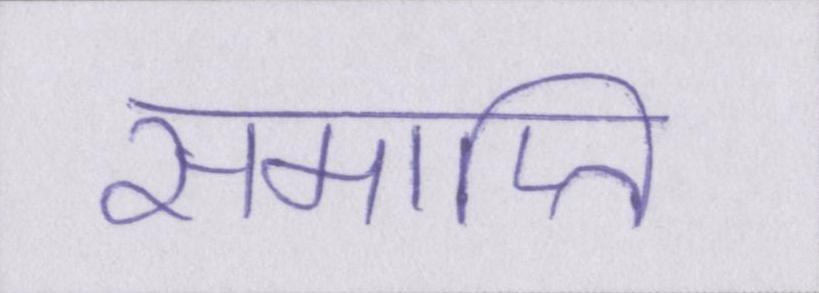 समाप्ति